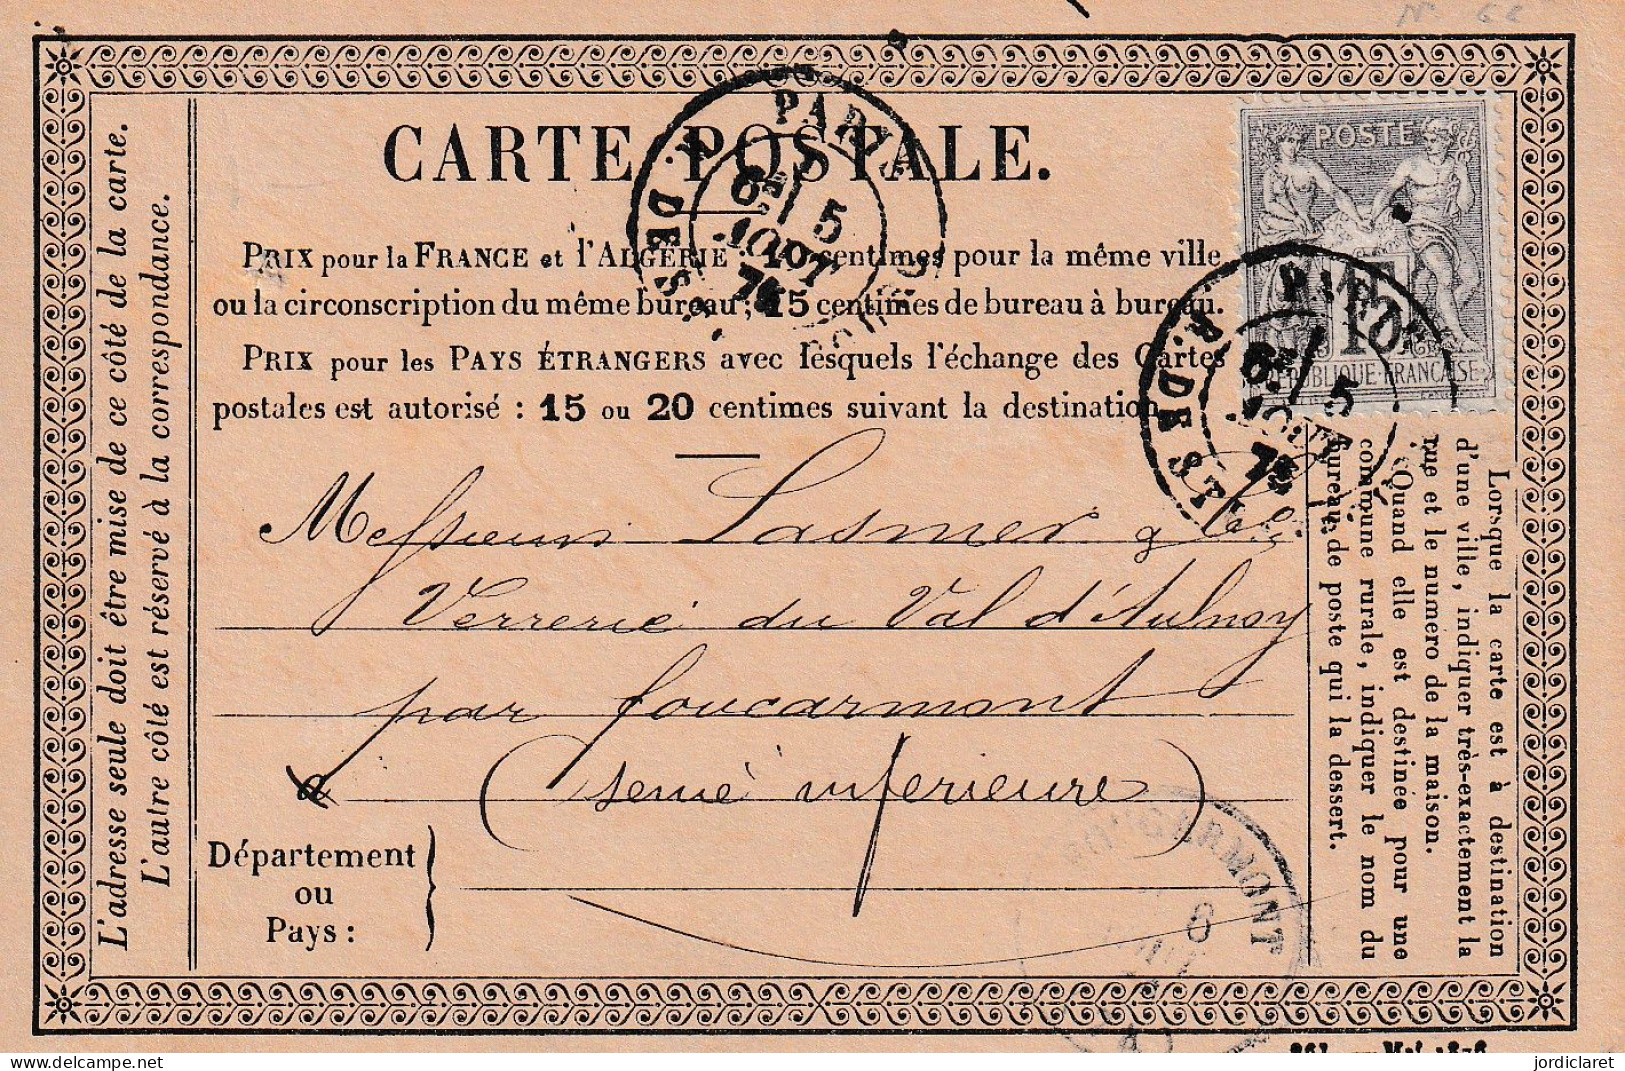 Nº 66
CARTE POSTALE.
PRIX pour la FRANCE et l'ALGÉRIE : centimes pour la même ville
ou la circonscription du même bureau ; 15 centimes de bureau à bureau.
PRIX pour les PAYS ÉTRANGERS avec lesquels l'échange des Cartes
postales est autorisé : 15 ou 20 centimes suivant la destination
Messieurs Lasmer & Cie
Verrerie du Val d'Aulnoy
par foucarmont
à (seine inferieure)
Département
ou
Pays :
L'adresse seule doit être mise de ce côté de la carte.
L'autre côté est réservé à la correspondance.
Lorsque la carte est à destination
d'une ville, indiquer très-exactement la
rue et le numéro de la maison.
Quand elle est destinée pour une
commune rurale, indiquer le nom du
bureau de poste qui la dessert.
POSTE
15
RÉPUBLIQUE FRANÇAISE
PARIS
R. DE ST
6E 5
AOUT
PARIS
R. DE ST
6E 5
AOUT
FOUCARMONT
6
delcampe.net
jordiclaret